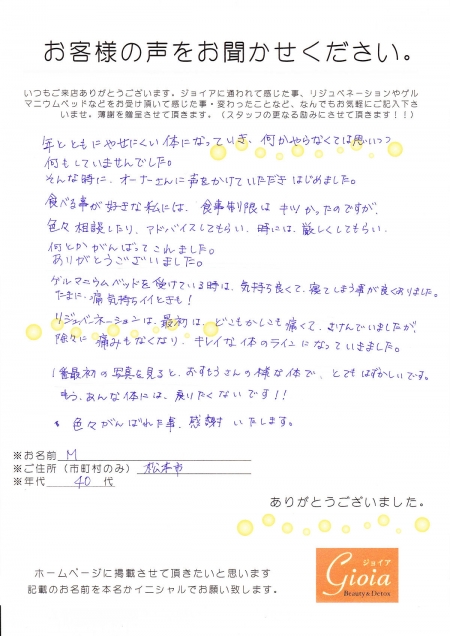 お客様の声をお聞かせください。
いつもご来店ありがとうございます。ジョイアに通われて感じた事、リジュベネーションやゲル
マニウムベッドなどをお受け頂いて感じた事・変わったことなど、なんでもお気軽にご記入下
さいませ。薄謝を贈呈させて頂きます。（スタッフの更なる励みにさせて頂きます！！）
年とともにやせにくい体になっていき、何かやらなくては思いつつ
何もしていませんでした。
そんな時に、オーナーさんに声をかけていただきはじめました。
食べる事が好きな私には、食事制限はキツかったのですが、
色々相談したり、アドバイスしてもらい、時には厳しくしてもらい、
何とかがんばってこれました。
ありがとうございました。
ゲルマニウムベッドを受けている時は、気持ち良くて、寝てしまう事が良くありました。
たまに、痛気持ちイイときも！
リジュバネーションは、最初は、どこもかしこも痛くて、さけんでいましたが、
除々に痛みもなくなり、キレイな体のラインになっていきました。
1番最初の写真を見ると、おすもうさんの様な体で、とてもはずかしいです。
もう、あんな体には、戻りたくないです！！
色々がんばれた事、感謝いたします。
※お名前 M
※ご住所（市町村のみ） 松本市
※年代 40 代
ありがとうございました。
ホームページに掲載させて頂きたいと思います
記載のお名前を本名かイニシャルでお願い致します。
ジョイア
Gioia
Beauty&Detox